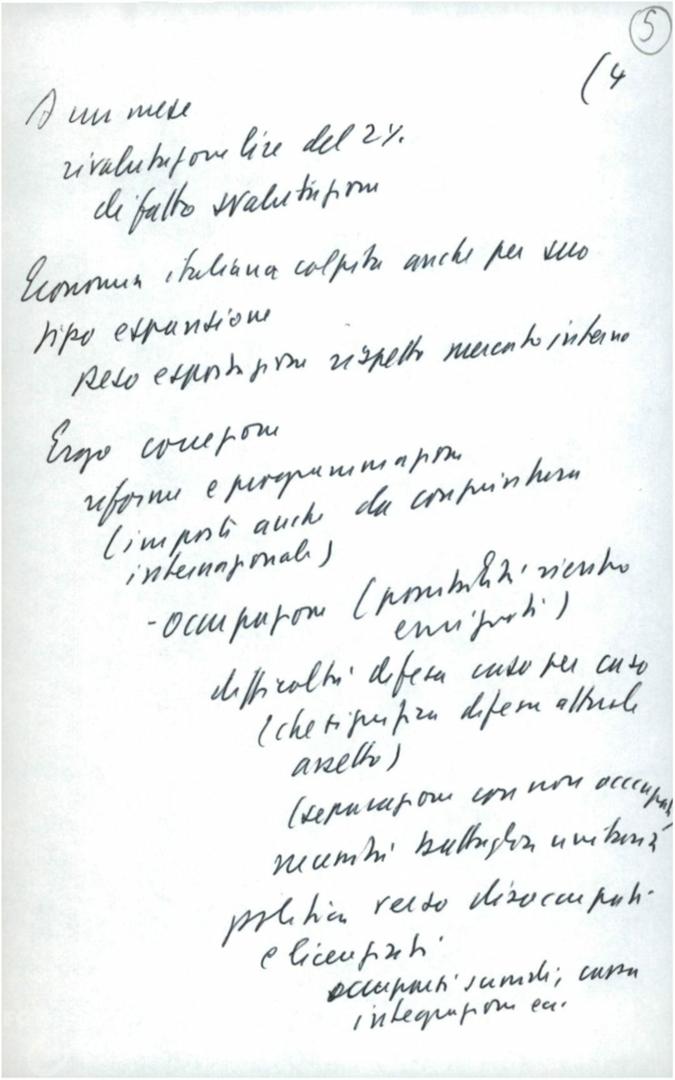 5
(4
A un mese
rivalutazione lire del 2%
di fatto svalutazione
Economia italiana colpita anche per suo
tipo espansione
peso esportazione rispetto mercato interno
Ergo correzione
riforme e programmazione
(imposti anche da congiuntura
internazionale)
- occupazione (possibilità rientro
emigrati)
difficoltà difesa caso per caso
(che significa difesa attuale
assetto)
(separazione con non occupati
necessità battaglia unitaria
politica verso disoccupati
e licenziati
occupanti ; cassa
integrazione ecc.